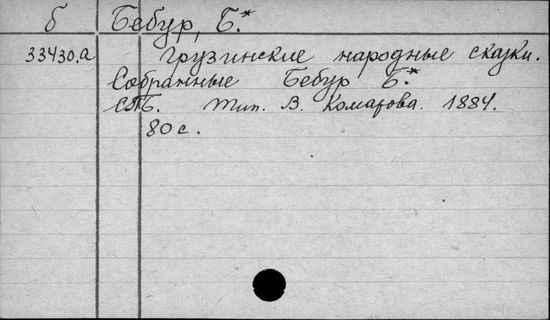 б Бебур, Б.*
33430.а Грузинские народные сказки.
Собранные Бебур Б.*
СПБ. Тип. В. Комарова. 1884.
80 с.